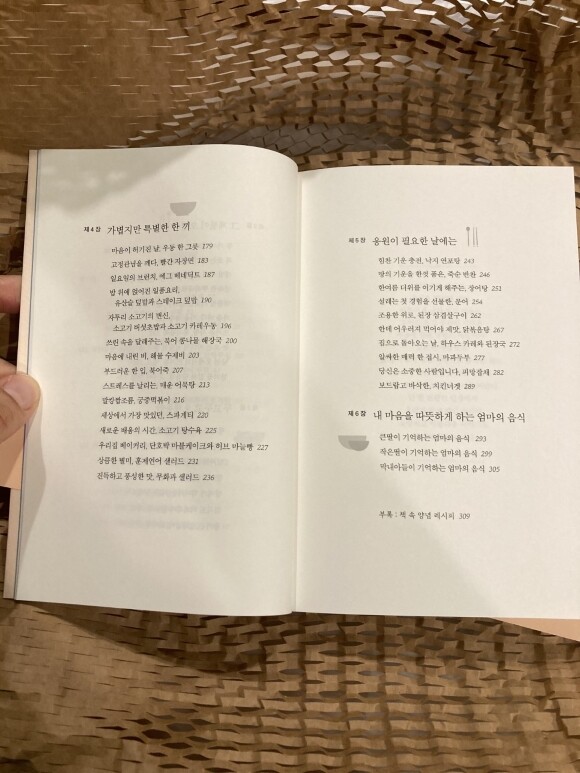 제4장 가볍지만 특별한 한 끼
마음이 허기진 날, 우동 한 그릇 179
고정관념을 깨다, 빨간 자장면 183
일요일의 브런치, 에그 베네딕트 187
밥 위에 얹어진 일품요리,
유산슬 덮밥과 스테이크 덮밥 190
자투리 소고기의 변신,
소고기 버섯초밥과 소고기 카레우동 196
쓰린 속을 달래주는, 북어 콩나물 해장국 200
마음에 내린 비, 해물 수제비 203
부드러운 한 입, 북어죽 207
스트레스를 날리는, 매운 어묵탕 213
말랑쌉조름, 궁중떡볶이 216
세상에서 가장 맛있던, 스파게티 220
새로운 배움의 시간, 소고기 탕수육 225
우리집 베이커리, 단호박 마블케이크와 허브 마늘빵 227
상큼한 별미, 훈제연어 샐러드 231
진득하고 풍성한 맛, 무화과 샐러드 236
제5장 응원이 필요한 날에는
힘찬 기운 충전, 낙지 연포탕 243
땅의 기운을 한껏 품은, 죽순 반찬 246
한여름 더위를 이기게 해주는, 장어탕 251
설레는 첫 경험을 선물한, 문어 254
조용한 위로, 된장 삼겹살구이 262
한데 어우러져 먹어야 제맛, 닭볶음탕 267
집으로 돌아오는 날, 하우스 카레와 된장국 272
알싸한 매력 한 접시, 마파두부 277
당신은 소중한 사람입니다, 피망잡채 282
보드랍고 바삭한, 치킨너겟 289
제6장 내 마음을 따뜻하게 하는 엄마의 음식
큰딸이 기억하는 엄마의 음식 293
작은딸이 기억하는 엄마의 음식 299
막내아들이 기억하는 엄마의 음식 305
부록 : 책 속 양념 레시피 309